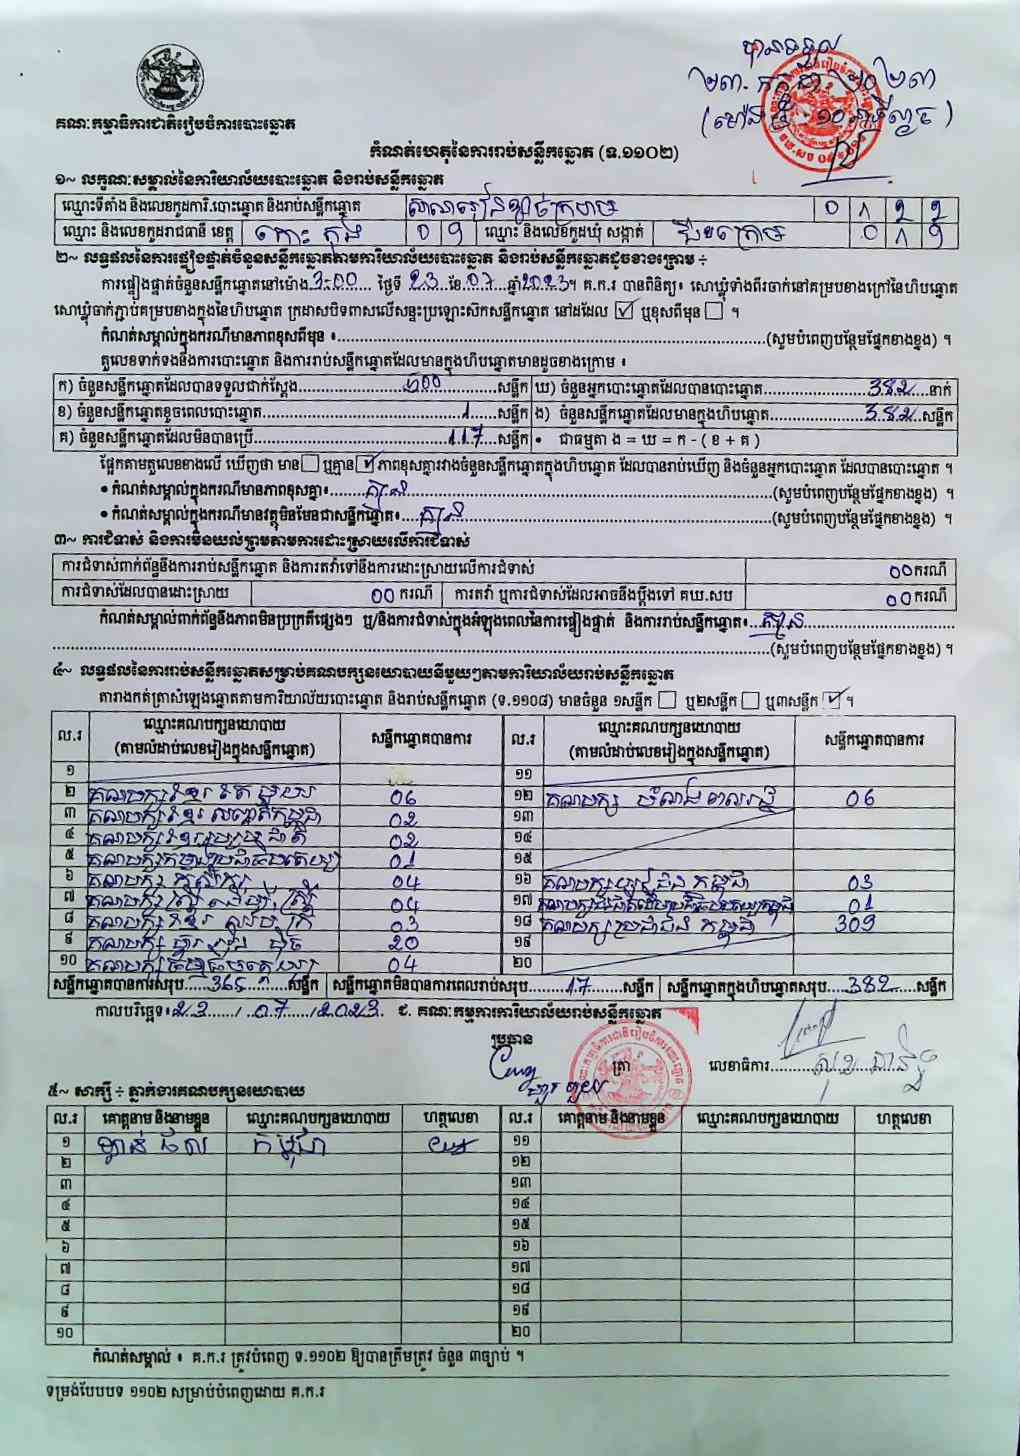 បានទទួល
២៣. កក្កដា ២០២៣
គណៈកម្មាធិការជាតិរៀបចំការបោះឆ្នោត
កំណត់ហេតុនៃការរាប់សន្លឹកឆ្នោត (ទ.១១០២)
១~ លក្ខណៈសម្គាល់នៃការិយាល័យបោះឆ្នោត និងរាប់សន្លឹកឆ្នោត
ឈ្មោះទីតាំង និងលេខកូដការិ.បោះឆ្នោត និងរាប់សន្លឹកឆ្នោត 0 1 2 2
ឈ្មោះ និងលេខកូដរាជធានី ខេត្ត កោះកុង 0 9 ឈ្មោះ និងលេខកូដឃុំ សង្កាត់ 0 1 9
២~ លទ្ធផលនៃការផ្ទៀងផ្ទាត់ចំនួនសន្លឹកឆ្នោតតាមការិយាល័យបោះឆ្នោត និងរាប់សន្លឹកឆ្នោតដូចខាងក្រោម ÷
ការផ្ទៀងផ្ទាត់ចំនួនសន្លឹកឆ្នោតនៅម៉ោង 3-00 ថ្ងៃទី 23 ខែ 07 ឆ្នាំ 2023។ គ.ក.រ បានពិនិត្យ៖ សោឃ្លុំទាំងពីរចាក់នៅគម្របខាងក្រៅនៃហិបឆ្នោត
សោឃ្លុំចាក់ភ្ជាប់គម្របខាងក្នុងនៃហិបឆ្នោត ក្រដាសបិទពាសលើសន្ទះប្រឡោះស៊កសន្លឹកឆ្នោត នៅដដែល ☑ ឬខុសពីមុន ☐ ។
កំណត់សម្គាល់ក្នុងករណីមានភាពខុសពីមុន ៖ (សូមបំពេញបន្ថែមផ្នែកខាងខ្នង) ។
តួលេខទាក់ទងនឹងការបោះឆ្នោត និងការរាប់សន្លឹកឆ្នោតដែលមានក្នុងហិបឆ្នោតមានដូចខាងក្រោម ៖
ក) ចំនួនសន្លឹកឆ្នោតដែលបានទទួលជាក់ស្តែង 500 សន្លឹក ឃ) ចំនួនអ្នកបោះឆ្នោតដែលបានបោះឆ្នោត 382 នាក់
ខ) ចំនួនសន្លឹកឆ្នោតខូចពេលបោះឆ្នោត 1 សន្លឹក ង) ចំនួនសន្លឹកឆ្នោតដែលមានក្នុងហិបឆ្នោត 382 សន្លឹក
គ) ចំនួនសន្លឹកឆ្នោតដែលមិនបានប្រើ 117 សន្លឹក • ជាធម្មតា ង = ឃ = ក - ( ខ + គ )
ផ្អែកតាមតួលេខខាងលើ ឃើញថា មាន ☐ ឬគ្មាន ☑ ភាពខុសគ្នារវាងចំនួនសន្លឹកឆ្នោតក្នុងហិបឆ្នោត ដែលបានរាប់ឃើញ និងចំនួនអ្នកបោះឆ្នោត ដែលបានបោះឆ្នោត ។
• កំណត់សម្គាល់ក្នុងករណីមានភាពខុសគ្នា៖ គ្មាន (សូមបំពេញបន្ថែមផ្នែកខាងខ្នង) ។
• កំណត់សម្គាល់ក្នុងករណីមានវត្ថុមិនមែនជាសន្លឹកឆ្នោត៖ គ្មាន (សូមបំពេញបន្ថែមផ្នែកខាងខ្នង) ។
៣~ ការជំទាស់ និងការមិនយល់ព្រមតាមការដោះស្រាយលើការជំទាស់
ការជំទាស់ពាក់ព័ន្ធនឹងការរាប់សន្លឹកឆ្នោត និងការតវ៉ាទៅនឹងការដោះស្រាយលើការជំទាស់ 00 ករណី
ការជំទាស់ដែលបានដោះស្រាយ 00 ករណី ការតវ៉ា ឬការជំទាស់ដែលអាចនឹងប្តឹងទៅ គឃ.សប 00 ករណី
កំណត់សម្គាល់ពាក់ព័ន្ធនឹងភាពមិនប្រក្រតីផ្សេងៗ ឬ/និងការជំទាស់ក្នុងអំឡុងពេលនៃការផ្ទៀងផ្ទាត់ និងការរាប់សន្លឹកឆ្នោត៖ គ្មាន
(សូមបំពេញបន្ថែមផ្នែកខាងខ្នង) ។
៤~ លទ្ធផលនៃការរាប់សន្លឹកឆ្នោតសម្រាប់គណបក្សនយោបាយនីមួយៗតាមការិយាល័យរាប់សន្លឹកឆ្នោត
តារាងកត់ត្រាសំឡេងឆ្នោតតាមការិយាល័យបោះឆ្នោត និងរាប់សន្លឹកឆ្នោត (ទ.១១០៨) មានចំនួន ១សន្លឹក ☐ ឬ២សន្លឹក ☐ ឬ៣សន្លឹក ☑ ។
ល.រ ឈ្មោះគណបក្សនយោបាយ (តាមលំដាប់លេខរៀងក្នុងសន្លឹកឆ្នោត) សន្លឹកឆ្នោតបានការ ល.រ ឈ្មោះគណបក្សនយោបាយ (តាមលំដាប់លេខរៀងក្នុងសន្លឹកឆ្នោត) សន្លឹកឆ្នោតបានការ
១ ១១
២ គណបក្សខ្មែរតែមួយ 06 ១២ គណបក្ស 06
៣ គណបក្សខ្មែរ 02 ១៣
៤ គណបក្សខ្មែររួបរួមជាតិ 02 ១៤
៥ គណបក្សកម្ពុជា 01 ១៥
៦ គណបក្ស 04 ១៦ គណបក្ស កម្ពុជា 03
៧ គណបក្ស 04 ១៧ គណបក្ស 01
៨ គណបក្សខ្មែរ 03 ១៨ គណបក្សប្រជាជន កម្ពុជា 309
៩ គណបក្ស ហ្វ៊ុនស៊ិនប៉ិច 20 ១៩
១០ គណបក្ស 04 ២០
សន្លឹកឆ្នោតបានការសរុប 365 សន្លឹក សន្លឹកឆ្នោតមិនបានការពេលរាប់សរុប 17 សន្លឹក សន្លឹកឆ្នោតក្នុងហិបឆ្នោតសរុប 382 សន្លឹក
កាលបរិច្ឆេទ៖ 23 / 07 / 2023 ជ. គណៈកម្មការការិយាល័យរាប់សន្លឹកឆ្នោត
ប្រធាន
ត្រា លេខាធិការ
៥~ សាក្សី ÷ ភ្នាក់ងារគណបក្សនយោបាយ
ល.រ គោត្តនាម និងនាមខ្លួន ឈ្មោះគណបក្សនយោបាយ ហត្ថលេខា ល.រ គោត្តនាម និងនាមខ្លួន ឈ្មោះគណបក្សនយោបាយ ហត្ថលេខា
១ កម្ពុជា ១១
២ ១២
៣ ១៣
៤ ១៤
៥ ១៥
៦ ១៦
៧ ១៧
៨ ១៨
៩ ១៩
១០ ២០
កំណត់សម្គាល់ ៖ គ.ក.រ ត្រូវបំពេញ ទ.១១០២ ឱ្យបានត្រឹមត្រូវ ចំនួន ៣ច្បាប់ ។
ទម្រង់បែបបទ ១១០២ សម្រាប់បំពេញដោយ គ.ក.រ